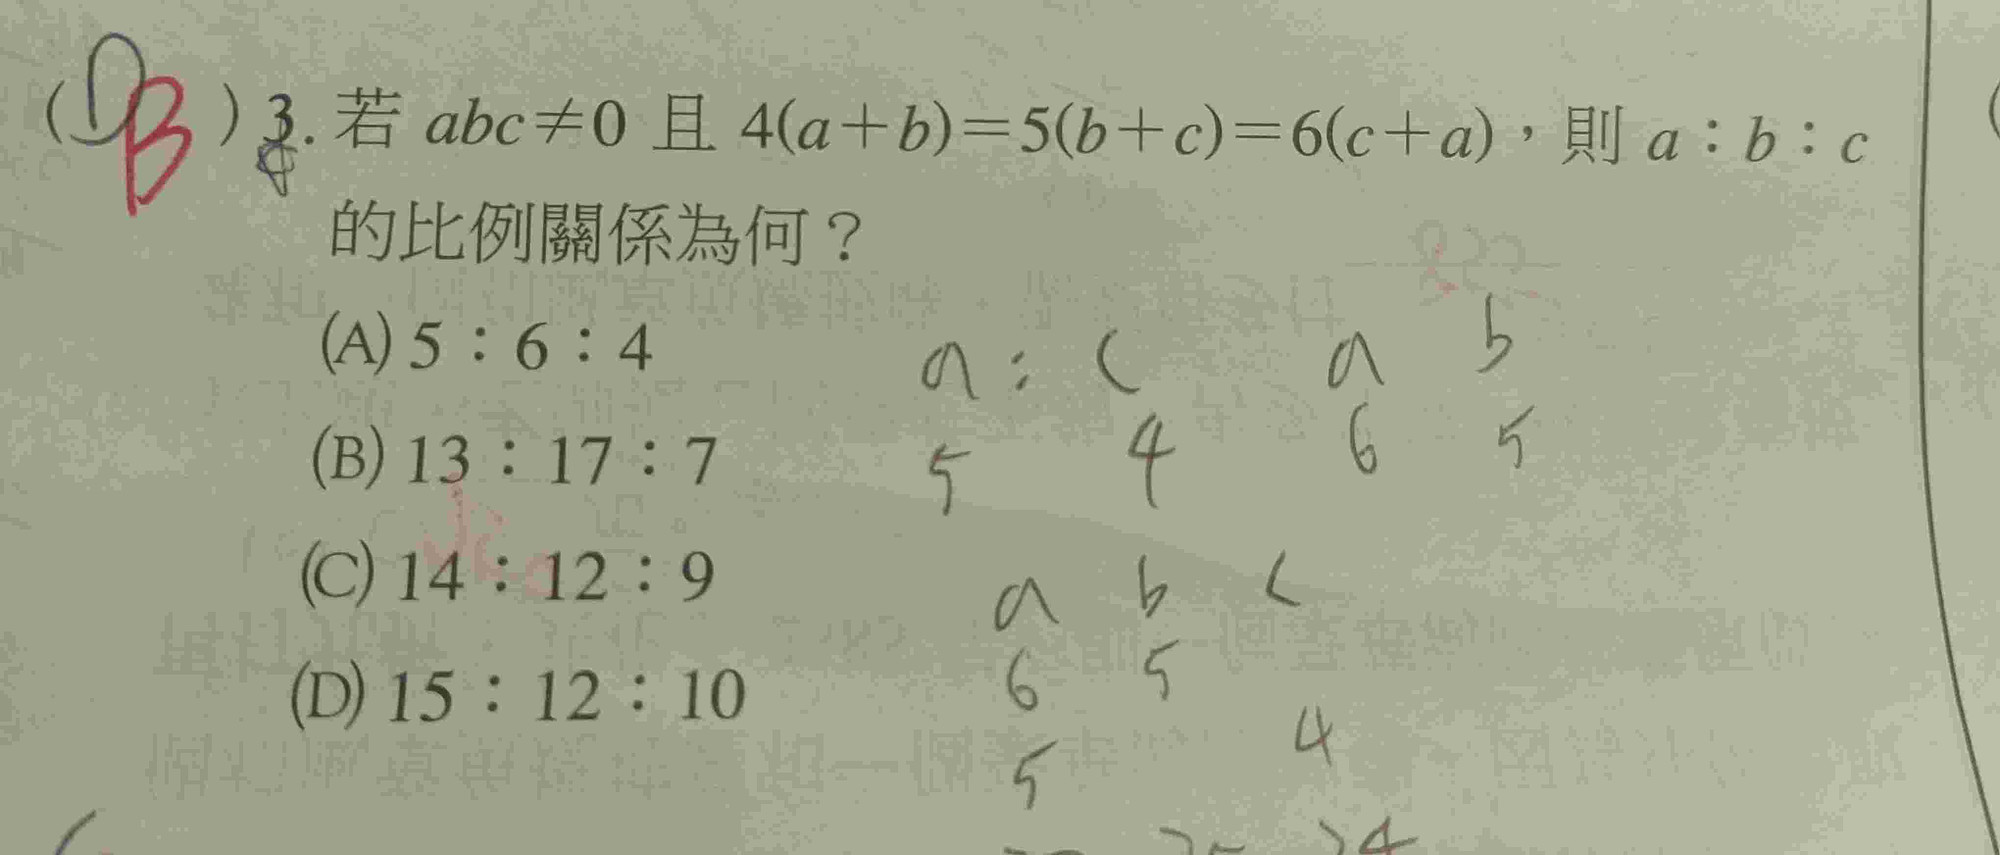 (DB) 3. 若 abc≠0 且 4(a+b)=5(b+c)=6(c+a)，則 a：b：c
的比例關係為何？
(A) 5：6：4
(B) 13：17：7
(C) 14：12：9
(D) 15：12：10
a : c a b
5 4 6 5
a b c
6 5
5 4
24